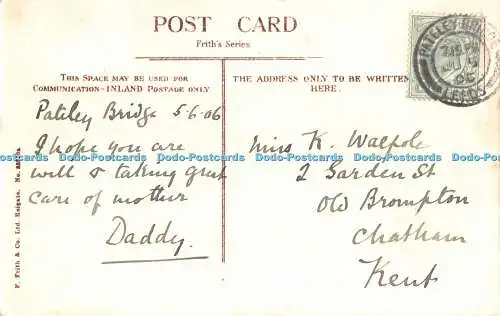 POST CARD
Frith's Series.
THIS SPACE MAY BE USED FOR
COMMUNICATION—INLAND POSTAGE ONLY
THE ADDRESS ONLY TO BE WRITTEN
HERE.
Pateley Bridge 5-6-06
I hope you are
well & taking great
care of mother
Daddy.
Miss K. Walpole
2 Garden St
Old Brompton
Chatham
Kent
F. Frith & Co. Ltd. Reigate. No.
PATELEY BRIDGE
LEEDS
Dodo-Postcards Dodo-Postcards Dodo-Postcards Dodo-Postcards Dodo-Postcards